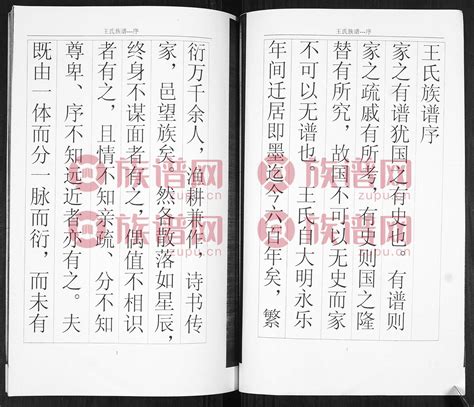 王氏族谱---序
王氏族谱序
家之有谱犹国之有史也。有谱则
家之疏戚有所考，有史则国之隆
替有所究，故国不可以无史而家
不可以无谱也。王氏自大明永乐
年间迁居即墨迄今六百年矣，繁
王氏族谱---序
衍万千余人，渔耕兼作，诗书传
家，邑望族矣。然各散落如星辰，
终身不谋面者有之，偶值不相识
者有之，且情不知亲疏、分不知
尊卑、序不知远近者亦有之。夫
既由一体而分一脉而衍，而未有
族谱网
zupu.cn
族谱网
zupu.cn